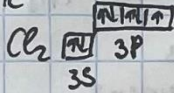 Cl₂ ↑↓ ↑↓ ↑↓ ↑
3S 3P